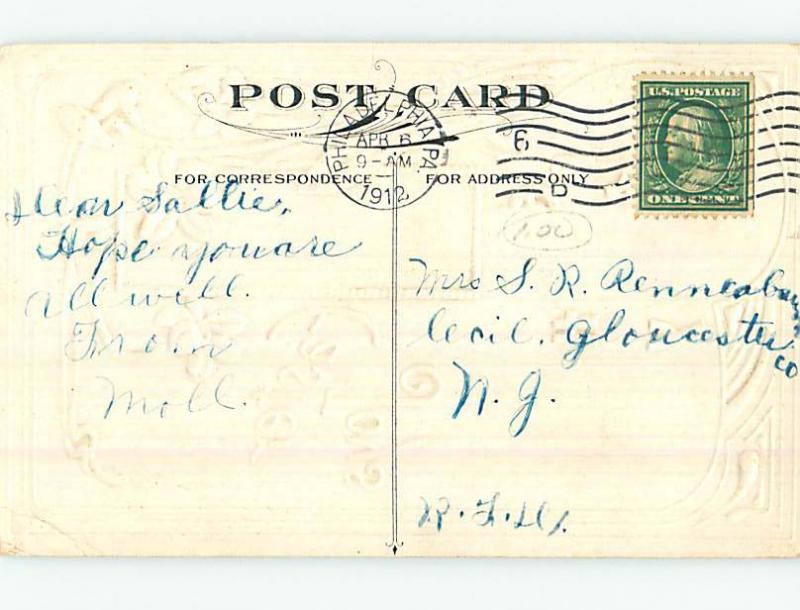 POST CARD
PHILADELPHIA, PA.
APR 6
9-AM
1912
6
D
U.S. POSTAGE
ONE CENT
FOR CORRESPONDENCE
FOR ADDRESS ONLY
1.00
Dear Sallie,
Hope you are
all well.
From
Moll.
Mrs S. R.
Cecil. Gloucester
Co
N. J.
R. F. D.